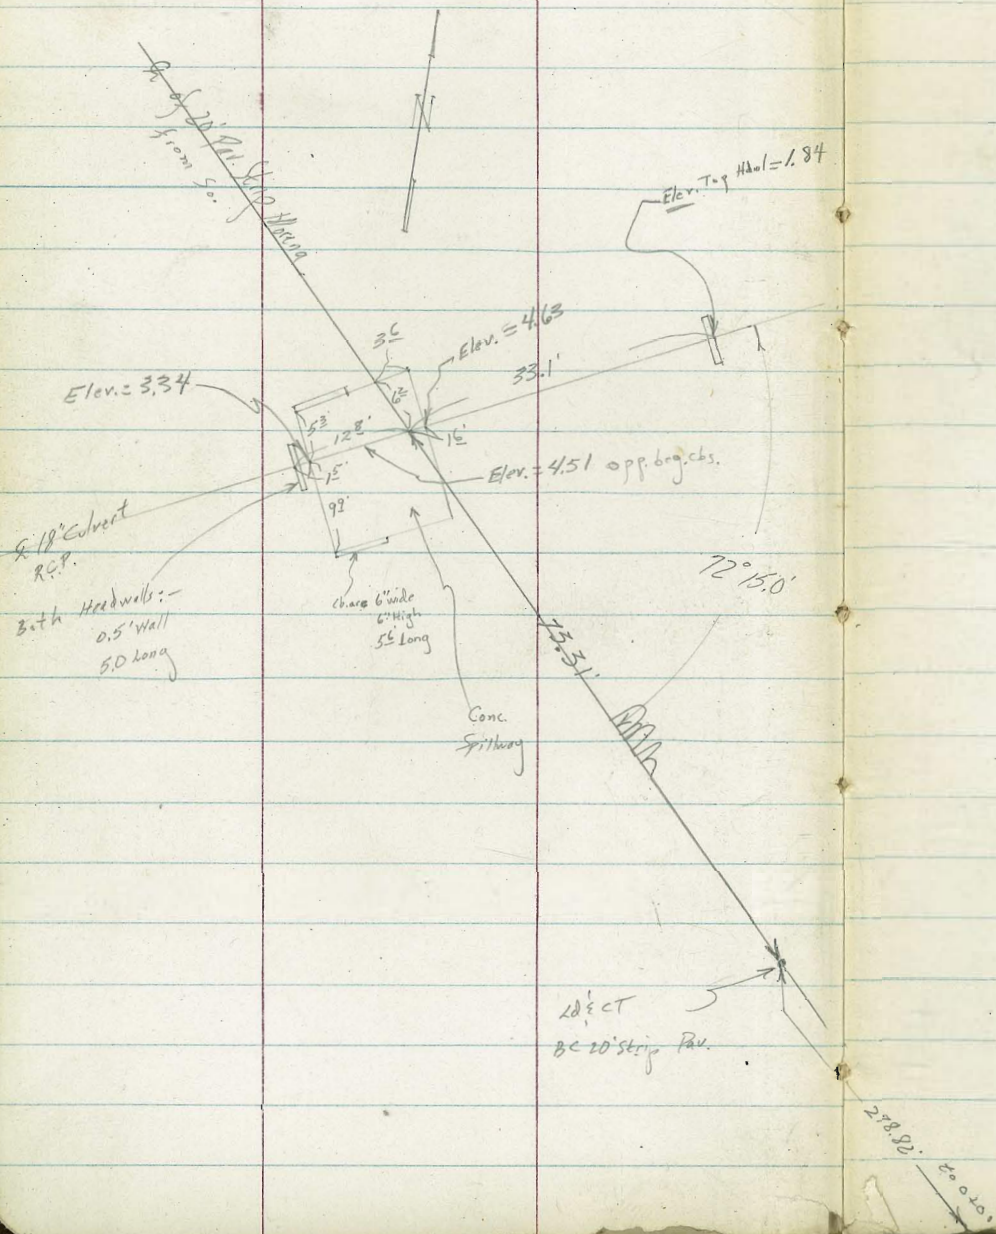 ℄ of 20' Pav. Strip
from So.
Elev. Top Hdwl = 1.84
Elev. = 4.63
3 6
6 2
33.1'
Elev. = 3.34
5 3'
12 8'
1 6'
1 5'
Elev. = 4.51 opp. beg. cbs.
9 9'
℄ 18" Culvert
R.C.P.
72° 15.0'
Both Headwalls:-
0.5' Wall
5.0 Long
cb. are 6" wide
6" High
5 6' Long
73.31'
Conc.
Spillway
Ld & CT
BC 20' Strip Pav.
278.82'